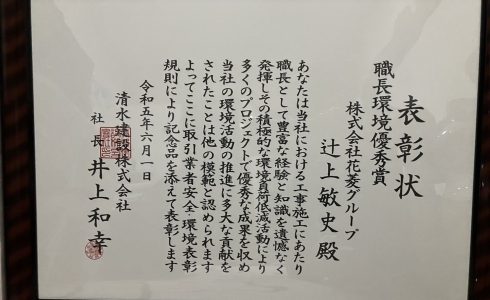 表彰状
職長環境優秀賞
株式会社花菱グループ
辻上敏史殿
あなたは当社における工事施工にあたり
職長として豊富な経験と知識を遺憾なく
発揮しその積極的な環境負荷低減活動により
多くのプロジェクトで優秀な成果を収め
当社の環境活動の推進に多大な貢献を
されたことは他の模範と認められます
よってここに取引業者安全・環境表彰
規則により記念品を添えて表彰します
令和五年六月一日
清水建設株式会社
社長 井上和幸